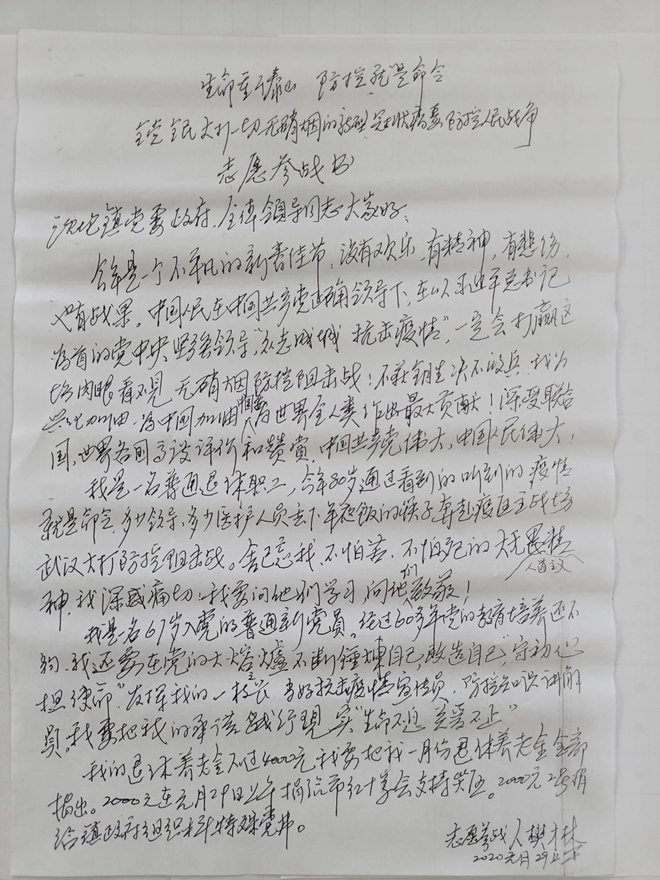 生命重于泰山 防控就是命令
全党全民大打一切无硝烟的新型冠状病毒防控人民战争
志愿参战书
镇党委政府,全体领导同志大家好:
今年是一个不平凡的新春佳节,没有欢乐,有精神,有悲伤,
又有战果。中国人民在中国共产党正确领导下,在以习近平总书记
为首的党中央坚强领导“众志成城 抗击疫情”,一定会打赢这
场肉眼看不见,无硝烟防控阻击战!不获全胜决不收兵,我们
共同加油,为中国加油,为世界全人类作出最大贡献!深受联合
国,世界各国高度评价和赞赏,中国共产党伟大,中国人民伟大,
我是一名普通退休职工,今年80岁通过看到的听到的疫情
就是命令,多少领导,多少医护人员丢下年夜饭的筷子奔赴疫区主战场
武汉大打防控阻击战。舍己忘我,不怕苦,不怕死的大无畏精
神,我深感痛切,我要向他们学习,向他们致敬!
我是一名67岁入党的普通新党员。经过60多年党的教育培养还不
够,我还要在党的大熔炉不断锤炼自己,改造自己,“守初心
担使命”发挥我的一技之长,当好抗击疫情宣传员,防控知识讲解
员。我要把我的承诺践行现实“生命不息 支善不止”
我的退休养老金不过4000元我要把我一月份退休养老金全部
捐出。2000元在元月29日上午捐给市红十字会支持灾区。2000元2号捐
给镇政府组织部特殊党费。
志愿参战人 樊才林
2020元月29上午